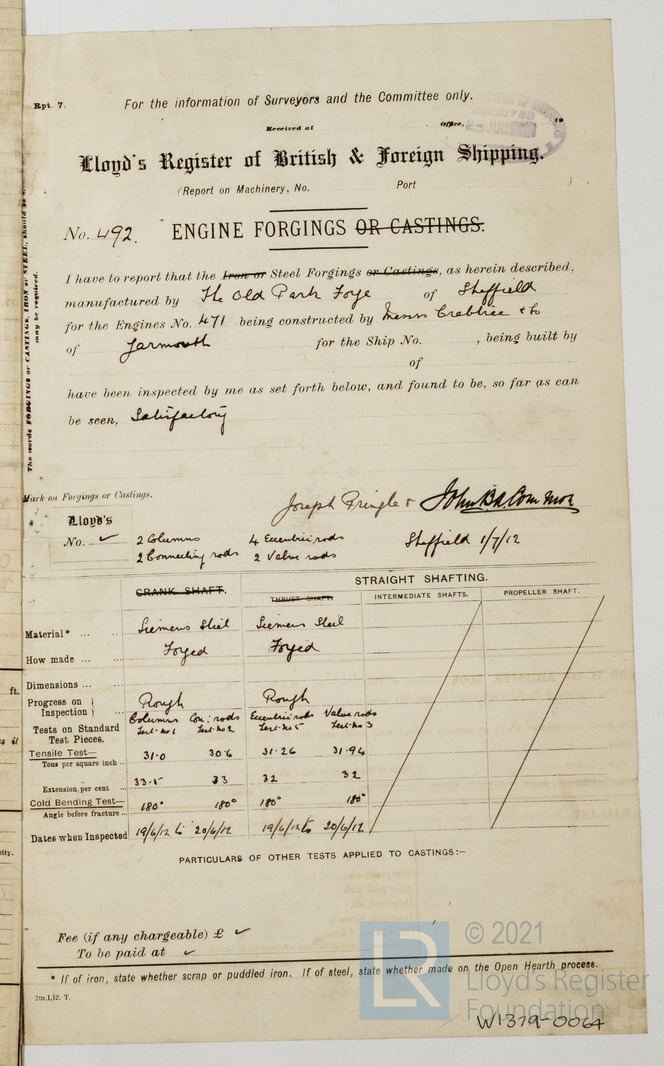 Rpt. 7.
For the information of Surveyors and the Committee only.
Received at Office, 19
Lloyd's Register of British & Foreign Shipping.
(Report on Machinery, No. Port )
No. 492. ENGINE FORGINGS OR CASTINGS.
I have to report that the Iron or Steel Forgings or Castings, as herein described,
manufactured by The Old Park Forge of Sheffield
for the Engines No. 471 being constructed by Messrs Crabtree & Co
of Yarmouth for the Ship No. , being built by
of
have been inspected by me as set forth below, and found to be, so far as can
be seen, Satisfactory
The words FORGINGS or CASTINGS, IRON or STEEL, should be
may be required.
Mark on Forgings or Castings.
Joseph Pringle &
Lloyd's
No. ✓
2 Columns 4 Eccentric rods Sheffield 1/7/12
2 Connecting rods 2 Valve rods
CRANK SHAFT. STRAIGHT SHAFTING.
THRUST SHAFT. INTERMEDIATE SHAFTS. PROPELLER SHAFT.
Material* ... ... Siemens Steel Siemens Steel
How made ... ... Forged Forged
Dimensions ... ...
Progress on Inspection } Rough Rough
Tests on Standard Test Pieces. Columns Con: rods Eccentric rods Valve rods
Test No 1 Test No 2 Test No 5 Test No 3
Tensile Test— 31.0 30.6 31.26 31.94
Tons per square inch ...
Extension, per cent ... 33.5 33 32 32
Cold Bending Test— 180° 180° 180° 180°
Angle before fracture ...
Dates when Inspected 19/6/12 to 20/6/12 19/6/12 to 20/6/12
PARTICULARS OF OTHER TESTS APPLIED TO CASTINGS:—
Fee (if any chargeable) £ ✓
To be paid at ✓
* If of iron, state whether scrap or puddled iron. If of steel, state whether made on the Open Hearth process.
2m,1,12. T.
ft.
LR
© 2021
Lloyd's Register
Foundation
W1379-0064